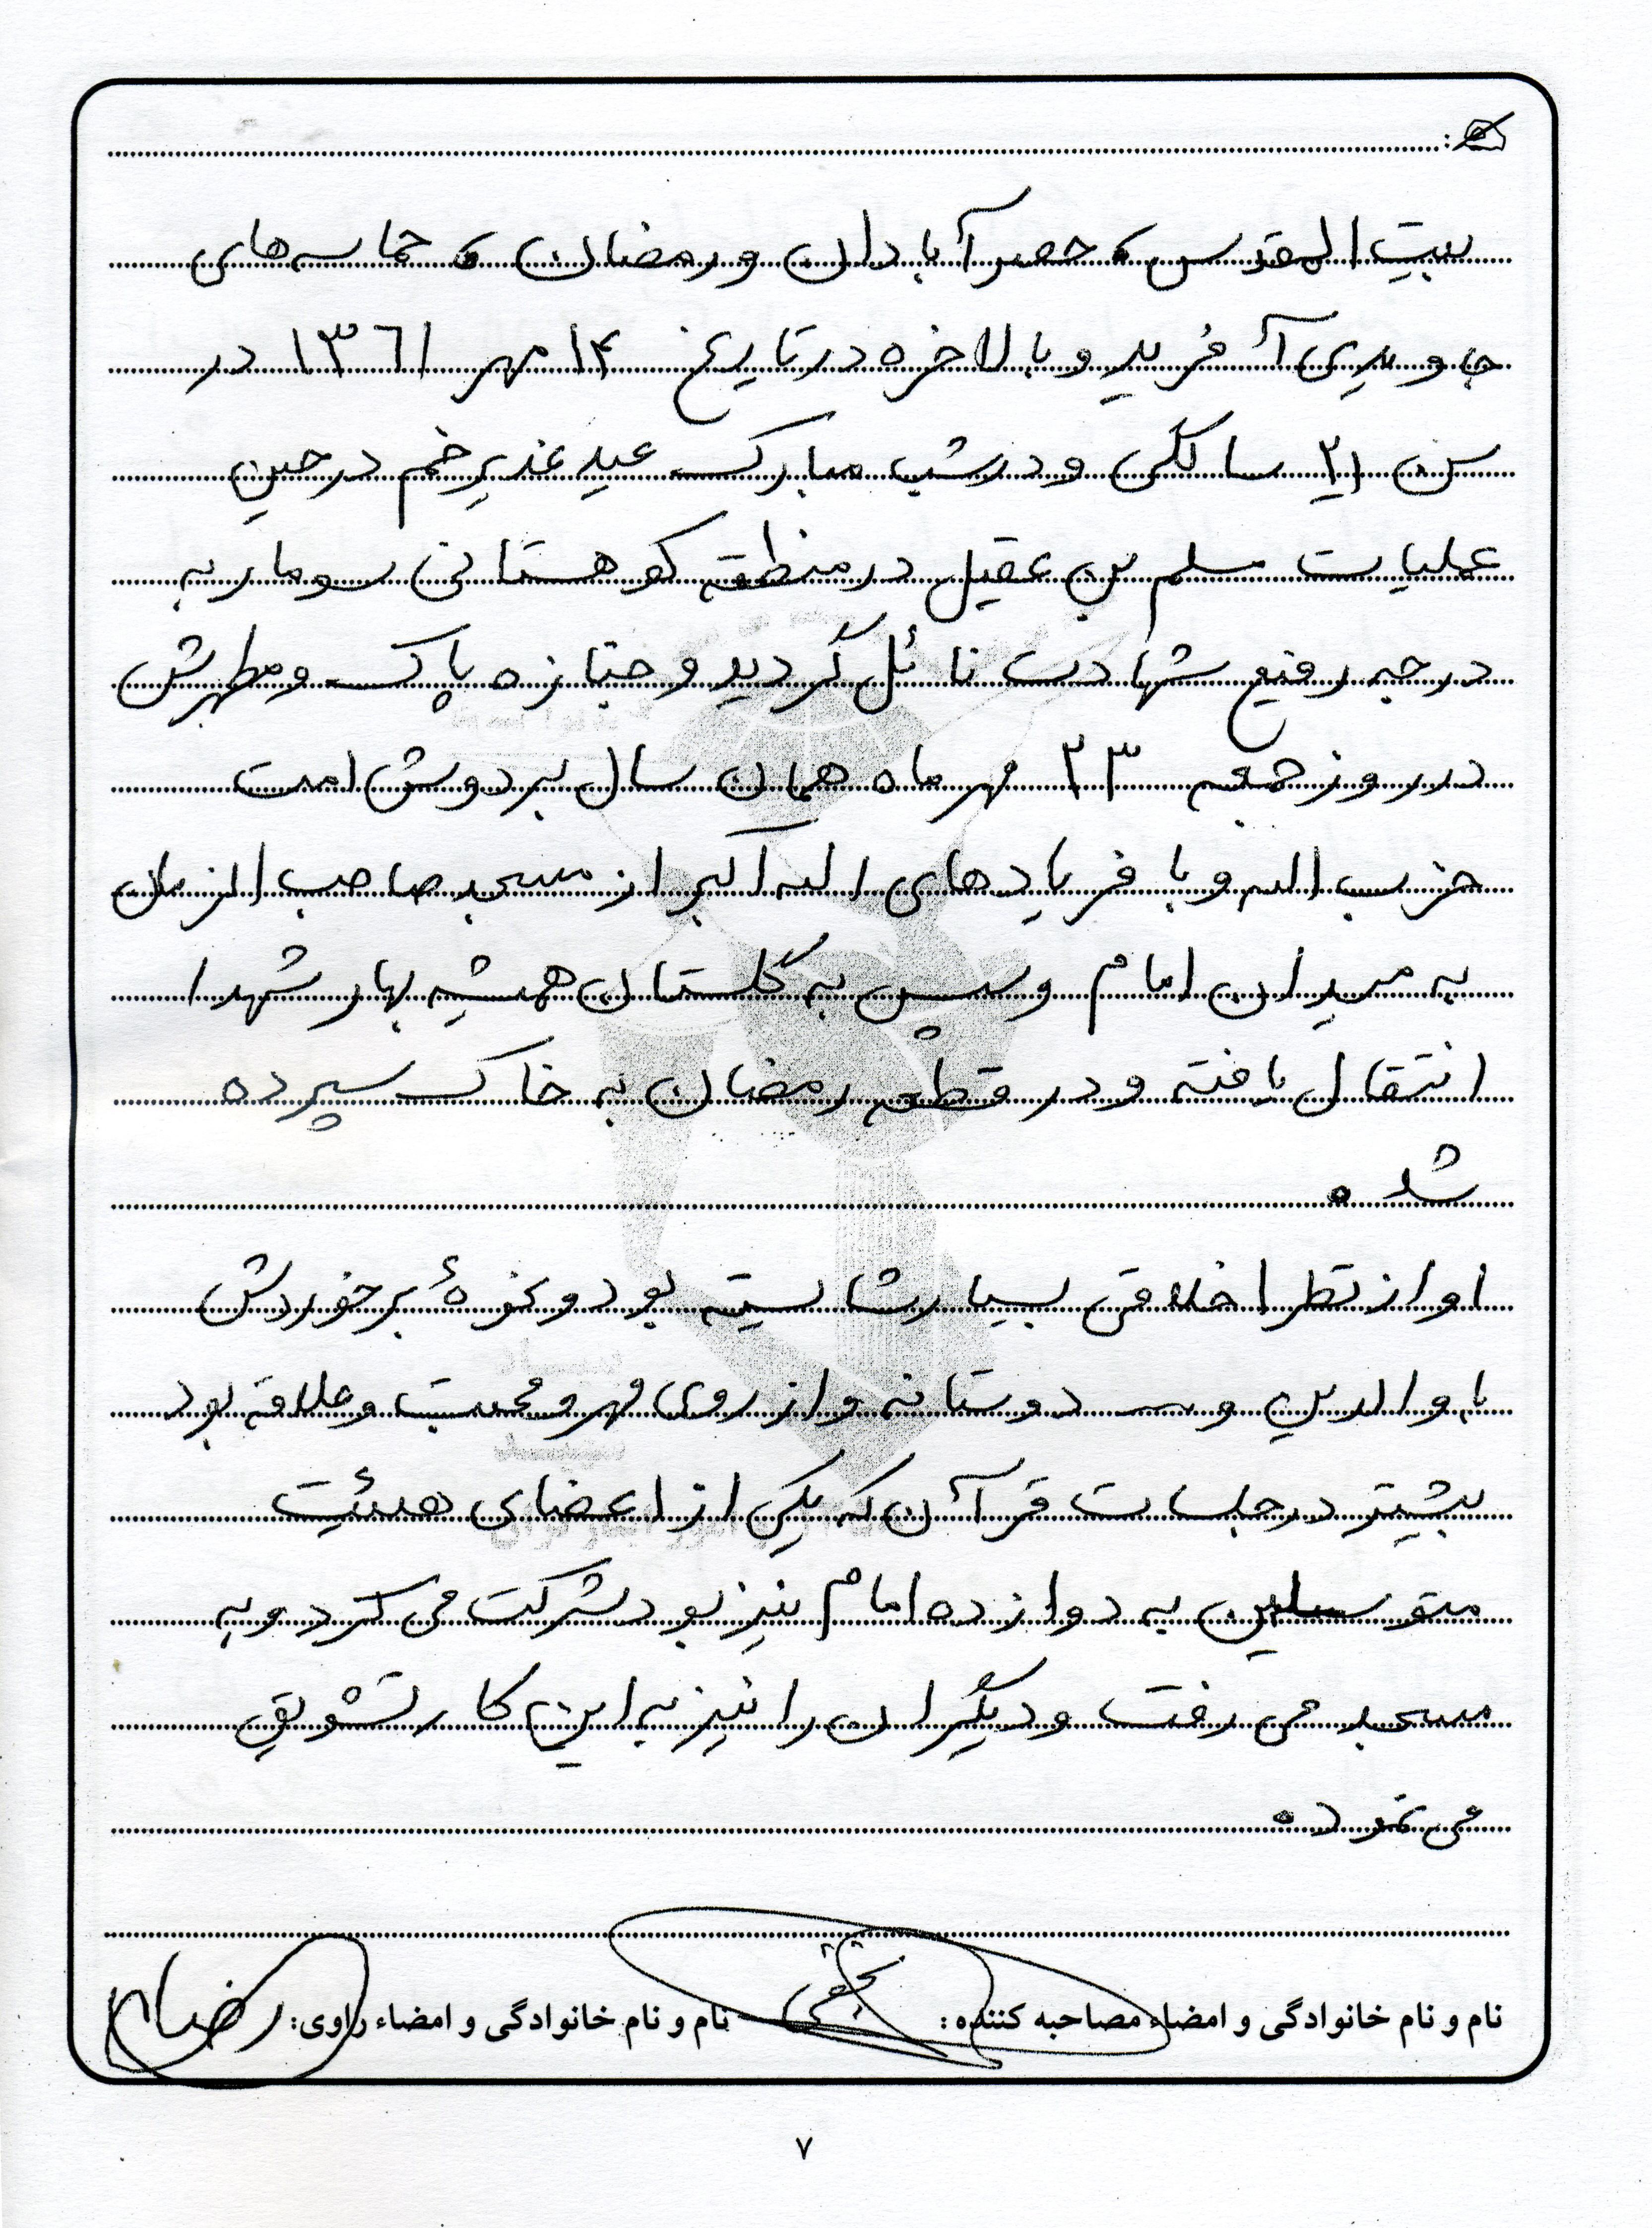 بیت المقدس، حصر آبادان و رمضان، حماسه‌های
جاویدی آفرید و بالاخره در تاریخ ۱۴ مهر ۱۳۶۱ در
سن ۲۱ سالگی و در شب مبارک عید غدیر خم در حین
عملیات مسلم بن عقیل در منطقه کوهستانی سومار به
درجه رفیع شهادت نائل گردید و جنازه پاک و مطهرش
در روز جمعه ۲۳ مهر ماه همان سال بر دوش امت
حزب اله و با فریادهای اله اکبر از مسجد صاحب الزمان
به میدان امام و سپس به گلستان همیشه بهار شهدا
انتقال یافته و در قطعه رمضان به خاک سپرده
شد.
او از نظر اخلاقی بسیار شایسته بود و نحوۀ برخوردش
با والدین و دوستانه و از روی مهر و محبت و علاقه بود
بیشتر در جلسات قرآن که یکی از اعضای هیئت
متوسلین به دوازده امام نیز بود شرکت می کرد و به
مسجد می رفت و دیگران را نیز به این کار تشویق
می نمود.
نام و نام خانوادگی و امضاء مصاحبه کننده: نام و نام خانوادگی و امضاء راوی:
۷